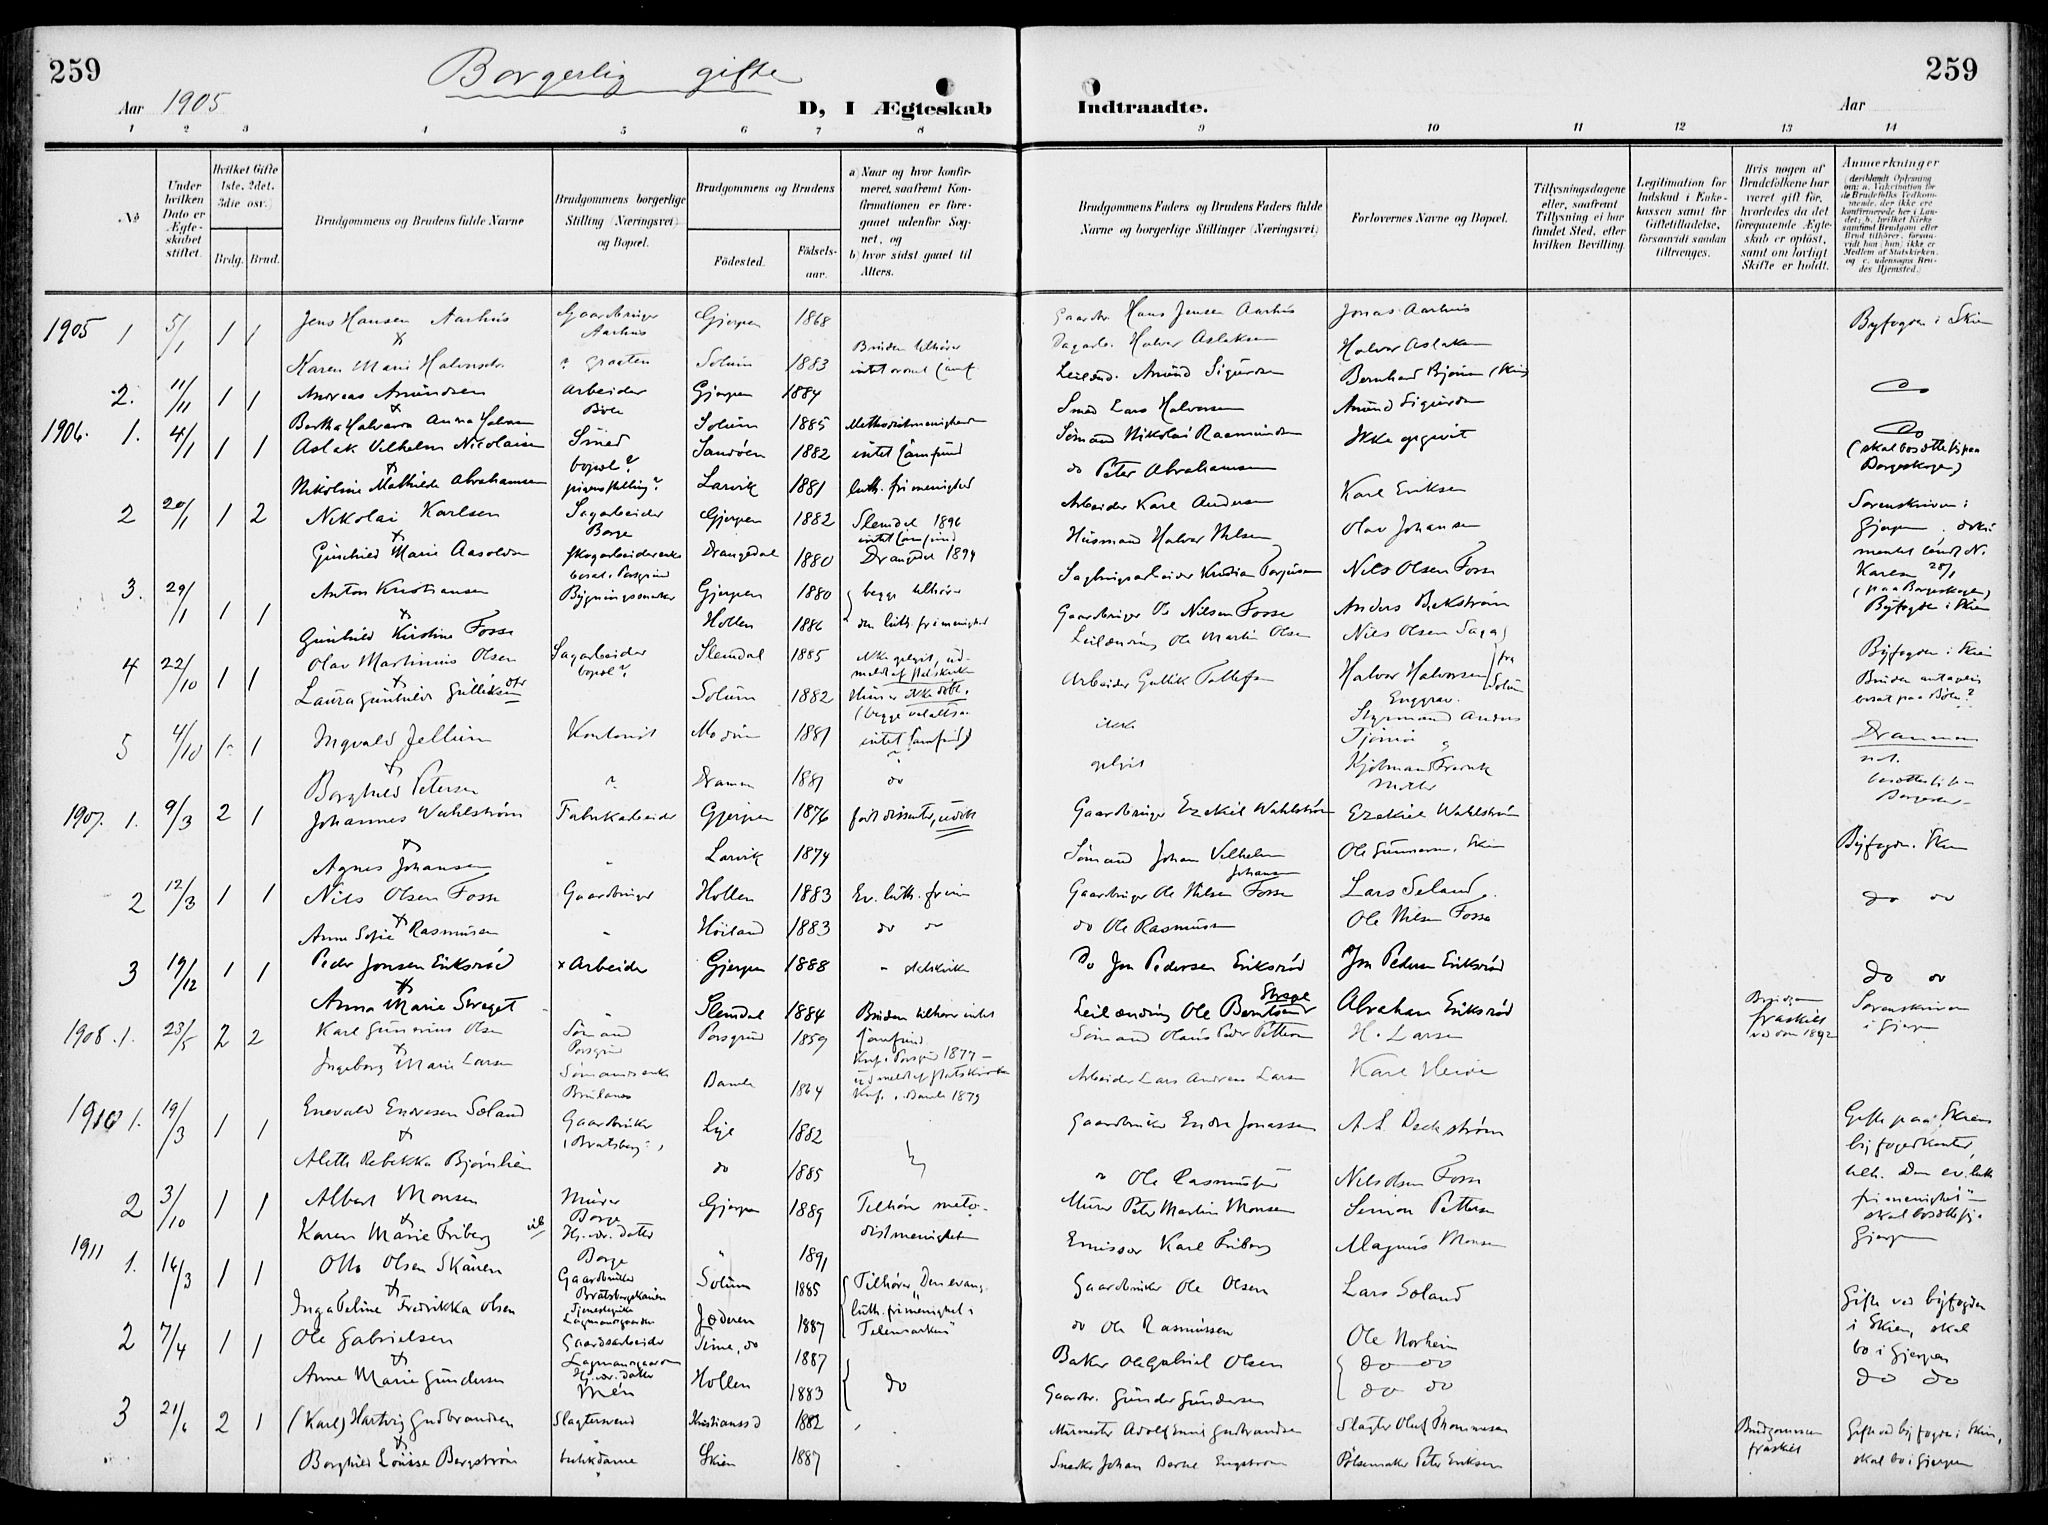 259
Borgerlig gifte
259
Aar 1905
D, I Ægteskab
Indtraadte.
Aar
1 2 3 4 5 6 7 8 9 10 11 12 13 14
No
Under hvilken Dato er Ægteskabet stiftet.
Hvilket Gifte 1ste, 2det, 3die osv.)
Brdg. Brud.
Brudgommens og Brudens fulde Navne
Brudgommens borgerlige Stilling (Næringsvei) og Bopæl.
Brudgommens og Brudens
Fødested.
Fødselsaar.
a) Naar og hvor konfirmeret, saafremt Konfirmationen er foregaaet udenfor Sognet, og
b) hvor sidst gaaet til Alters.
Brudgommens Faders og Brudens Faders fulde Navne og borgerlige Stillinger (Næringsvei)
Forlovernes Navne og Bopæl.
Tillysningsdagene eller, saafremt Tillysning ei har fundet Sted, efter hvilken Bevilling.
Legitimation for Indskud i Enkekassen samt for Giftetilladelse, forsaavidt saadan tiltrænges.
Hvis nogen af Brudefolkene har været gift før, hvorledes da det foregaaende Ægteskab er opløst, samt om lovligt Skifte er holdt.
Anmærkninger
(deriblandt Oplysning om: a. Vakcination for de Brudefolks Vedkommende, der ikke ere konfirmerede her i Landet; b. hvilket Kirkesamfund Brudgom eller Brud tilhører, forsaavidt han (hun) ikke er Medlem af Statskirken, og c. udensogns Brudes Hjemsted.)
1905 1 5/1 1 1 Jens Hansen Aarhus Gaardbruger Aarhus Gjerpen 1868 Gaardbr. Hans Jensen Aarhus Jonas Aarhus Byfogden i Skien
Karen Marie Halvorsdr. ? Graaten Solum 1883 Bruden tilhører intet Dagarb. Halvor Aslaksen Halvor Aslaksen
2. 11/11 1 1 Andreas Amundsen Arbeider Bøle Gjerpen 1884 Leilænd. Amund Sigurdsen Bernhard Bjørn (Skien)
Bertha Halvara Anna Halvorsen Solum 1885 Methodistmenigheden Smed Lars Halvorsen Amund Sigurdsen
1906. 1. 4/1 1 1 Aslak Vilhelm Nicolaisen Smed bopæl? Sandøen 1882 intet Samfund Sømand Nikolai Rasmussen Ikke opgivet (skal bosætte sig paa Borgeskogen)
Nikoline Mathilde Abrahamsen pigens stilling? Larvik 1881 luth. frimenighed do Peter Abrahamsen
2 20/1 1 2 Nikolai Karlsen Sagarbeider Borge Gjerpen 1882 Slemdal 1896 intet Samfund Arbeider Karl Andersen Karl Eriksen Sorenskriveren i Gjerpen
Gunhild Marie Aasoldsen Skogarbeiderenke bosat i Porsgrund Drangedal 1880 Drangedal 1894 Husmand Halvor Nilsen Olav Johansen
3. 29/1 1 1 Anton Kristiansen Bygningssnekker Gjerpen 1880 begge tilhører Sagbrugsarbeider Kristian Torjusen Nils Olsen Fosse (paa Borgeskogen) Byfogden i Skien
Gunhild Kirstine Fosse Hollen 1886 den luth. frimenighed Gaardbruger Ole Nilsen Fosse Anders Bekstrøm
4 22/10 1 1 Olav Martinius Olsen Sagarbeider bopæl? Slemdal 1885 Ikke opgivet, udmeldt af statskirken Leilænding Ole Martin Olsen Nils Olsen Saga Byfogden i Skien
Laura Gunhilda Gulliksen Solum 1882 Hun er ikke døbt. Arbeider Gullik Tollefsen Halvor Halvorsen fra Solum Bruden antagelig bosat paa Bøle?
5 4/10 1? 1 Ingvald Jellum Kontorist Modum 1881 intet Samfund ikke Styrmand Anders Tjømø Drammen
Borghild Petersen ? Dramen 1881 do opgivet Kjøbmand Fredrik
1907. 1. 9/3 2 1 Johannes Wahlstrøm Fabrikarbeider Gjerpen 1876 født dissenter, udøbt Gaardbruger Ezekiel Wahlstrøm Ezekiel Wahlstrøm
Agnes Johansen Larvik 1874 Sømand Johan Vilhelm Johansen Ole Gunnarsen, Skien Byfogden, Skien
2 12/3 1 1 Nils Olsen Fosse Gaardbruger Hollen 1883 Ev. luth. frim Gaardbruger Ole Nilsen Fosse Lars Søland. do do
Anne Sofie Rasmussen Høiland 1883 do do do Ole Rasmussen Ole Nilsen Fosse
3 19/12 1 1 Peder Jonsen Eriksrød x Arbeider Gjerpen 1888 " statskirke Do Jon Pedersen Eriksrød Jon Pedersen Eriksrød do do
Anna Marie Straget Slemdal 1884 Bruden tilhører intet Samfund Leilænding Ole Berntsen Straget Abraham Eriksrød
1908. 1. 23/5 2 2 Karl Gunerius Olsen Sømand Porsgrund Porsgrund 1859 Knf. i Porsgrd 1877 – udmeldt af statskirken Sømand Olaus Peder Pettersen H. Larsen fraskilt ved dom 1892 Sorenskriveren i Gjerpen
Ingeborg Marie Larsen Sømandsenke Bamle 1864 Knf. i Bamle 1879 Arbeider Lars Andreas Larsen Karl Heiøe
1910 1. 19/3 1 1 Enevald Endresen Søland Gaardbruker (Bratsberg) Lye 1882 Gaardbruker Endre Jonassen A. L. Beckstrøm Gifte paa Skiens byfogedkontor,
Aleth Rebekka Bjørnlien do 1885 " Ole Rasmussen Nils Olsen Fosse tilh. Den ev. luth frimenighet" –
2 3/10 1 1 Albert Monsen Murer Borge Gjerpen 1889 Tilhører metodistmenigheten Murer Peter Martin Monsen Simon Pettersen skal bosætte sig i Gjerpen
Karen Marie Friberg Hj. vær. datter Borge " 1891 Emissær Karl Friberg Magnus Monsen
1911 1. 14/3 1 1 Otto Olsen Skauen Gaardbruker Bratsbergskleven Solum 1885 Tilhører "Den evang. luth. frimenighet i Telemarken" Gaardbruker Ole Olsen Lars Søland Gifte ved byfogden i Skien, skal bo i Gjerpen
Inga Teline Fredrikka Olsen Tjenestepike Lagmansgaarden Jæderen 1887 do Ole Rasmussen Ole Norheim
2 7/4 1 1 Ole Gabrielsen Gaardsarbeider Lagmansgaarden Time, do 1887 do Baker Ole Gabriel Olsen do do do do
Anne Marie Gundersen Hj. vær. datter Mén Hollen 1883 Gaardbr. Gunder Gundersen do do
3 21/6 2 1 (Karl) Hartvig Gudbrandsen Slagtersvend Kristianssd 1882 Murmester Adolf Emil Gudbrandsen Slagter Oluf Thommesen Brudgommen fraskilt Gifte ved byfogden i Skien, skal bo i Gjerpen
Borghild Louisse Bergstrøm butikdame Skien 1887 Snedker Johan Bernt Engstrøm Pølsemaker Peter Eriksen